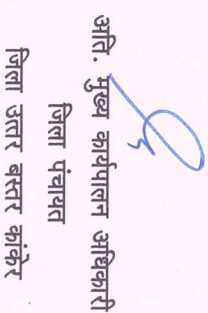 अति. मुख्य कार्यपालन अधिकारी
जिला पंचायत
जिला उत्तर बस्तर कांकेर